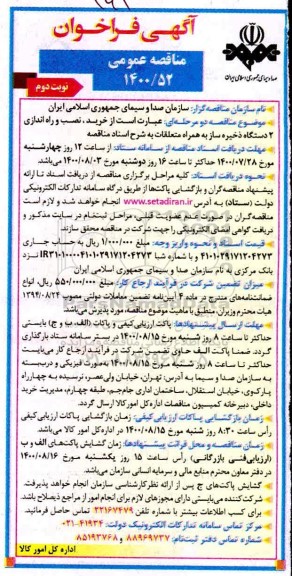 آگهی فراخوان
مناقصه عمومی
۱۴۰۰/۵۲
نوبت دوم
صدا و سیمای جمهوری اسلامی ایران
نام سازمان مناقصه‌گزار: سازمان صدا و سیمای جمهوری اسلامی ایران
موضوع مناقصه دو مرحله‌ای: عبارت است از خرید، نصب و راه اندازی
۲ دستگاه ذخیره ساز به همراه متعلقات به شرح اسناد مناقصه
مهلت دریافت اسناد مناقصه از سامانه ستاد: از ساعت ۱۲ روز چهارشنبه
مورخ ۱۴۰۰/۰۷/۲۸ حداکثر تا ساعت ۱۶ روز دوشنبه مورخ ۱۴۰۰/۰۸/۰۳ می‌باشد.
نحوه دریافت اسناد: کلیه مراحل برگزاری مناقصه از دریافت اسناد تا ارائه
پیشنهاد مناقصه‌گران و بازگشایی پاکت‌ها از طریق درگاه سامانه تدارکات الکترونیکی
دولت (ستاد) به آدرس www.setadiran.ir انجام خواهد شد و لازم است
مناقصه‌گران در صورت عدم عضویت قبلی، مراحل ثبت‌نام در سایت مذکور و
دریافت گواهی امضای الکترونیکی را جهت شرکت در مناقصه محقق سازند.
قیمت اسناد و نحوه واریز وجه: مبلغ ۱/۰۰۰/۰۰۰ ریال به حساب جاری
۴۱۰۱۰۲۹۱۷۱۲۰۴۲۷۳ و با شماره شبا IR۳۱۰۱۰۰۰۰۴۱۰۱۰۲۹۱۷۱۲۰۴۲۷۳ نزد
بانک مرکزی به نام سازمان صدا و سیمای جمهوری اسلامی ایران
میزان تضمین شرکت در فرآیند ارجاع کار: مبلغ ۵۵۰/۰۰۰/۰۰۰ ریال، انواع
ضمانتنامه‌های مندرج در ماده ۴ آیین‌نامه تضمین معاملات دولتی مصوب ۱۳۹۴/۰۸/۲۴
هیات محترم وزیران، منطبق با ماهیت موضوع مناقصه، مورد پذیرش می‌باشد.
مهلت ارسال پیشنهادها: پاکت ارزیابی کیفی و پاکات (الف، ب و ج)، بایستی
حداکثر تا ساعت ۸ روز شنبه مورخ ۱۴۰۰/۰۸/۱۵ در بستر سامانه ستاد بارگذاری
گردد. ضمنا پاکت الف حاوی تضمین شرکت در فرآیند ارجاع کار می‌بایست
حداکثر تا ساعت ۸ روز شنبه مورخ ۱۴۰۰/۰۸/۱۵ به‌صورت فیزیکی و دربسته
به سازمان صدا و سیما به آدرس: تهران، خیابان ولی‌عصر، نرسیده به چهارراه
پارک‌وی، خیابان استقلال، ساختمان اداری جام‌جم، طبقه چهارم، مدیریت خرید
داخلی، دبیرخانه کمیسیون مناقصات اداره کل امور کالا ارسال گردد.
زمان بازگشایی پاکات ارزیابی کیفی: زمان بازگشایی پاکات ارزیابی کیفی
رأس ساعت ۸:۳۰ روز شنبه مورخ ۱۴۰۰/۰۸/۱۵ در اداره کل امور کالا می‌باشد.
زمان مناقصه و محل قرائت پیشنهادها: زمان گشایش پاکت‌های الف و ب
(ارزیابی فنی بازرگانی) رأس ساعت ۱۵ روز یکشنبه مورخ ۱۴۰۰/۰۸/۱۶
در دفتر معاون محترم منابع مالی و سرمایه انسانی سازمان می‌باشد.
گشایش پاکت‌های ج پس از ارائه نظر کارشناسی سازمان انجام خواهد پذیرفت.
شرکت‌کننده می‌بایستی دارای مجوزهای لازم برای انجام امور از مراجع ذیصلاح باشد
برای کسب اطلاعات بیشتر با شماره تلفن ۲۲۱۶۷۴۷۹ تماس حاصل فرمائید.
مرکز تماس سامانه تدارکات الکترونیک دولت: ۴۱۹۳۴-۰۲۱
شماره تماس دفتر ثبت‌نام: ۸۸۹۶۹۷۳۷ و ۸۵۱۹۳۷۶۸
اداره کل امور کالا